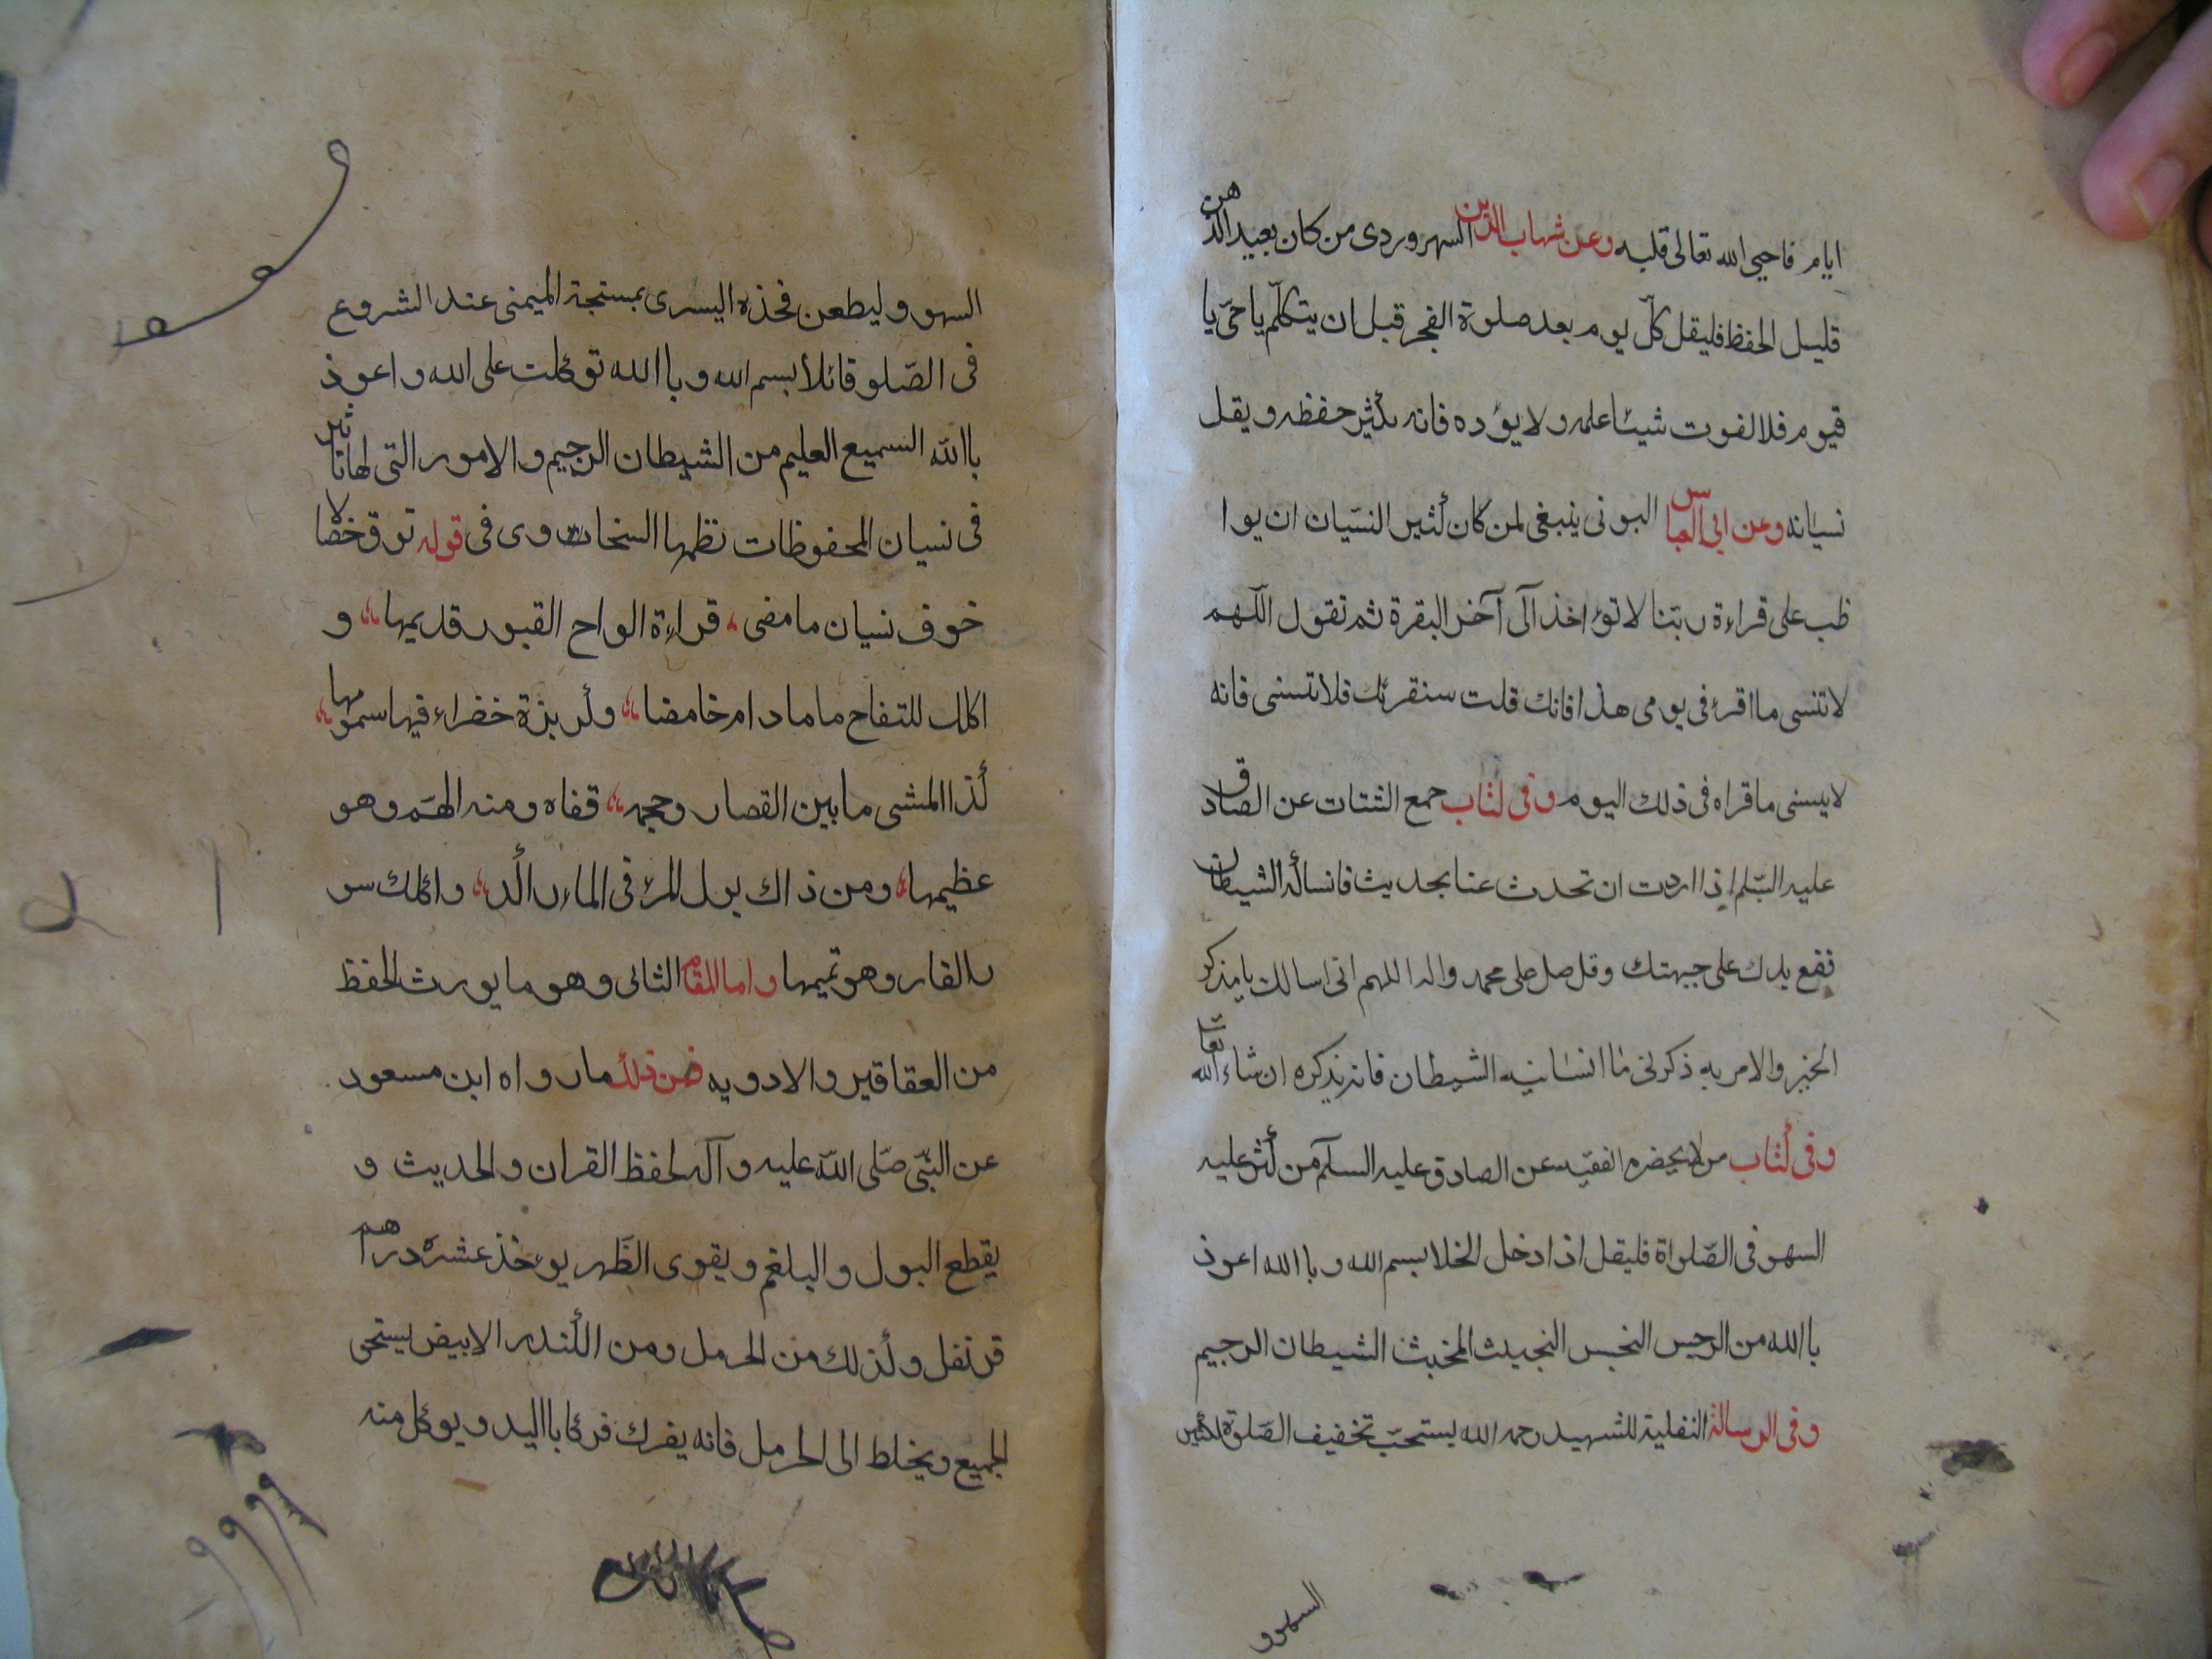 ايام فاحيى الله تعالى قلبه وعن شهاب الدين السهروردى من كان بعيد الذهن
قليل الحفظ فليقل كلّ يوم بعد صلوة الفجر قبل ان يتكلّم يا حىّ يا
قيوم فلا لفوت شيئا علمه ولا يؤده فانه يكثير حفظه ويقل
نسيانه وعن ابى العباس البونى ينبغى لمن كان كثير النسّيان ان يوا
ظب على قراءة ربّنا لا تؤاخذ آلى آخر البقرة ثم تقول اللّهم
لا تنسى ما اقرء فى يومى هذا فانك قلت سنقرئك فلا تنسى فانه
لا ينسى ما قراه فى ذلك اليوم وفى كتاب جمع الشتات عن الصادق
عليه السّلم اذا اردت ان تحدث عنا بحديث فانساكه الشيطان
فضع يدك على جبهتك وقل صل على محمد واله اللهم انى اسالك يا مذكر
الخير والامر به ذكرنى ما انسانيه الشيطان فانه يذكره ان شاء الله تعا
وفى كتاب من لا يحضره الفقيه عن الصادق عليه السلآم من كثر عليه
السهو فى الصّلواة فليقل اذا دخل الخلا بسم الله وبا الله اعوذ
با الله من الرجس النجس الخبيث المخبث الشيطان الرجيم
وفى الرسالة النفلية للشهيد رحمه الله يستحبّ تخفيف الصّلوة لكثير
السهو
السهو وليطعن فخذه اليسرى بمسبّحة اليمنى عند الشروع
فى الصّلو قائلا بسم الله وبا الله توكلت على الله واعوذ
با الله السميع العليم من الشيطان الرجيم والامور التى لها تاثير
فى نسيان المحفوظات نظمها السخاوى فى قوله توق خصالا
خوف نسيان ما مضى قراءة الواح القبور قديمها و
اكلك للتفاح ما مادام حامضا وكزبزة خضراء فيها سمومها
كذا المشى ما بين القصار وحجمه قفاه ومنه الهّم وهو
عظيمها ومن ذاك بول المرء فى الماء راكد واكلك سو
رالفار وهو تميمها واما المقام الثانى وهو ما يورث الحفظ
من العقاقير والادويه فمن ذلك ما رواه ابن مسعود
عن النبّى صّلى اللّه عليه وآله لحفظ القران والحديث و
يقطع البول والبلغم ويقوى الظّهر يوءخذ عشرة دراهم
قرنفل وكذلك من الحرمل ومن الكندر الابيض يستحق
الجميع ويخلط الى الحرمل فانه يفرك فركا با اليد ويوكل منه